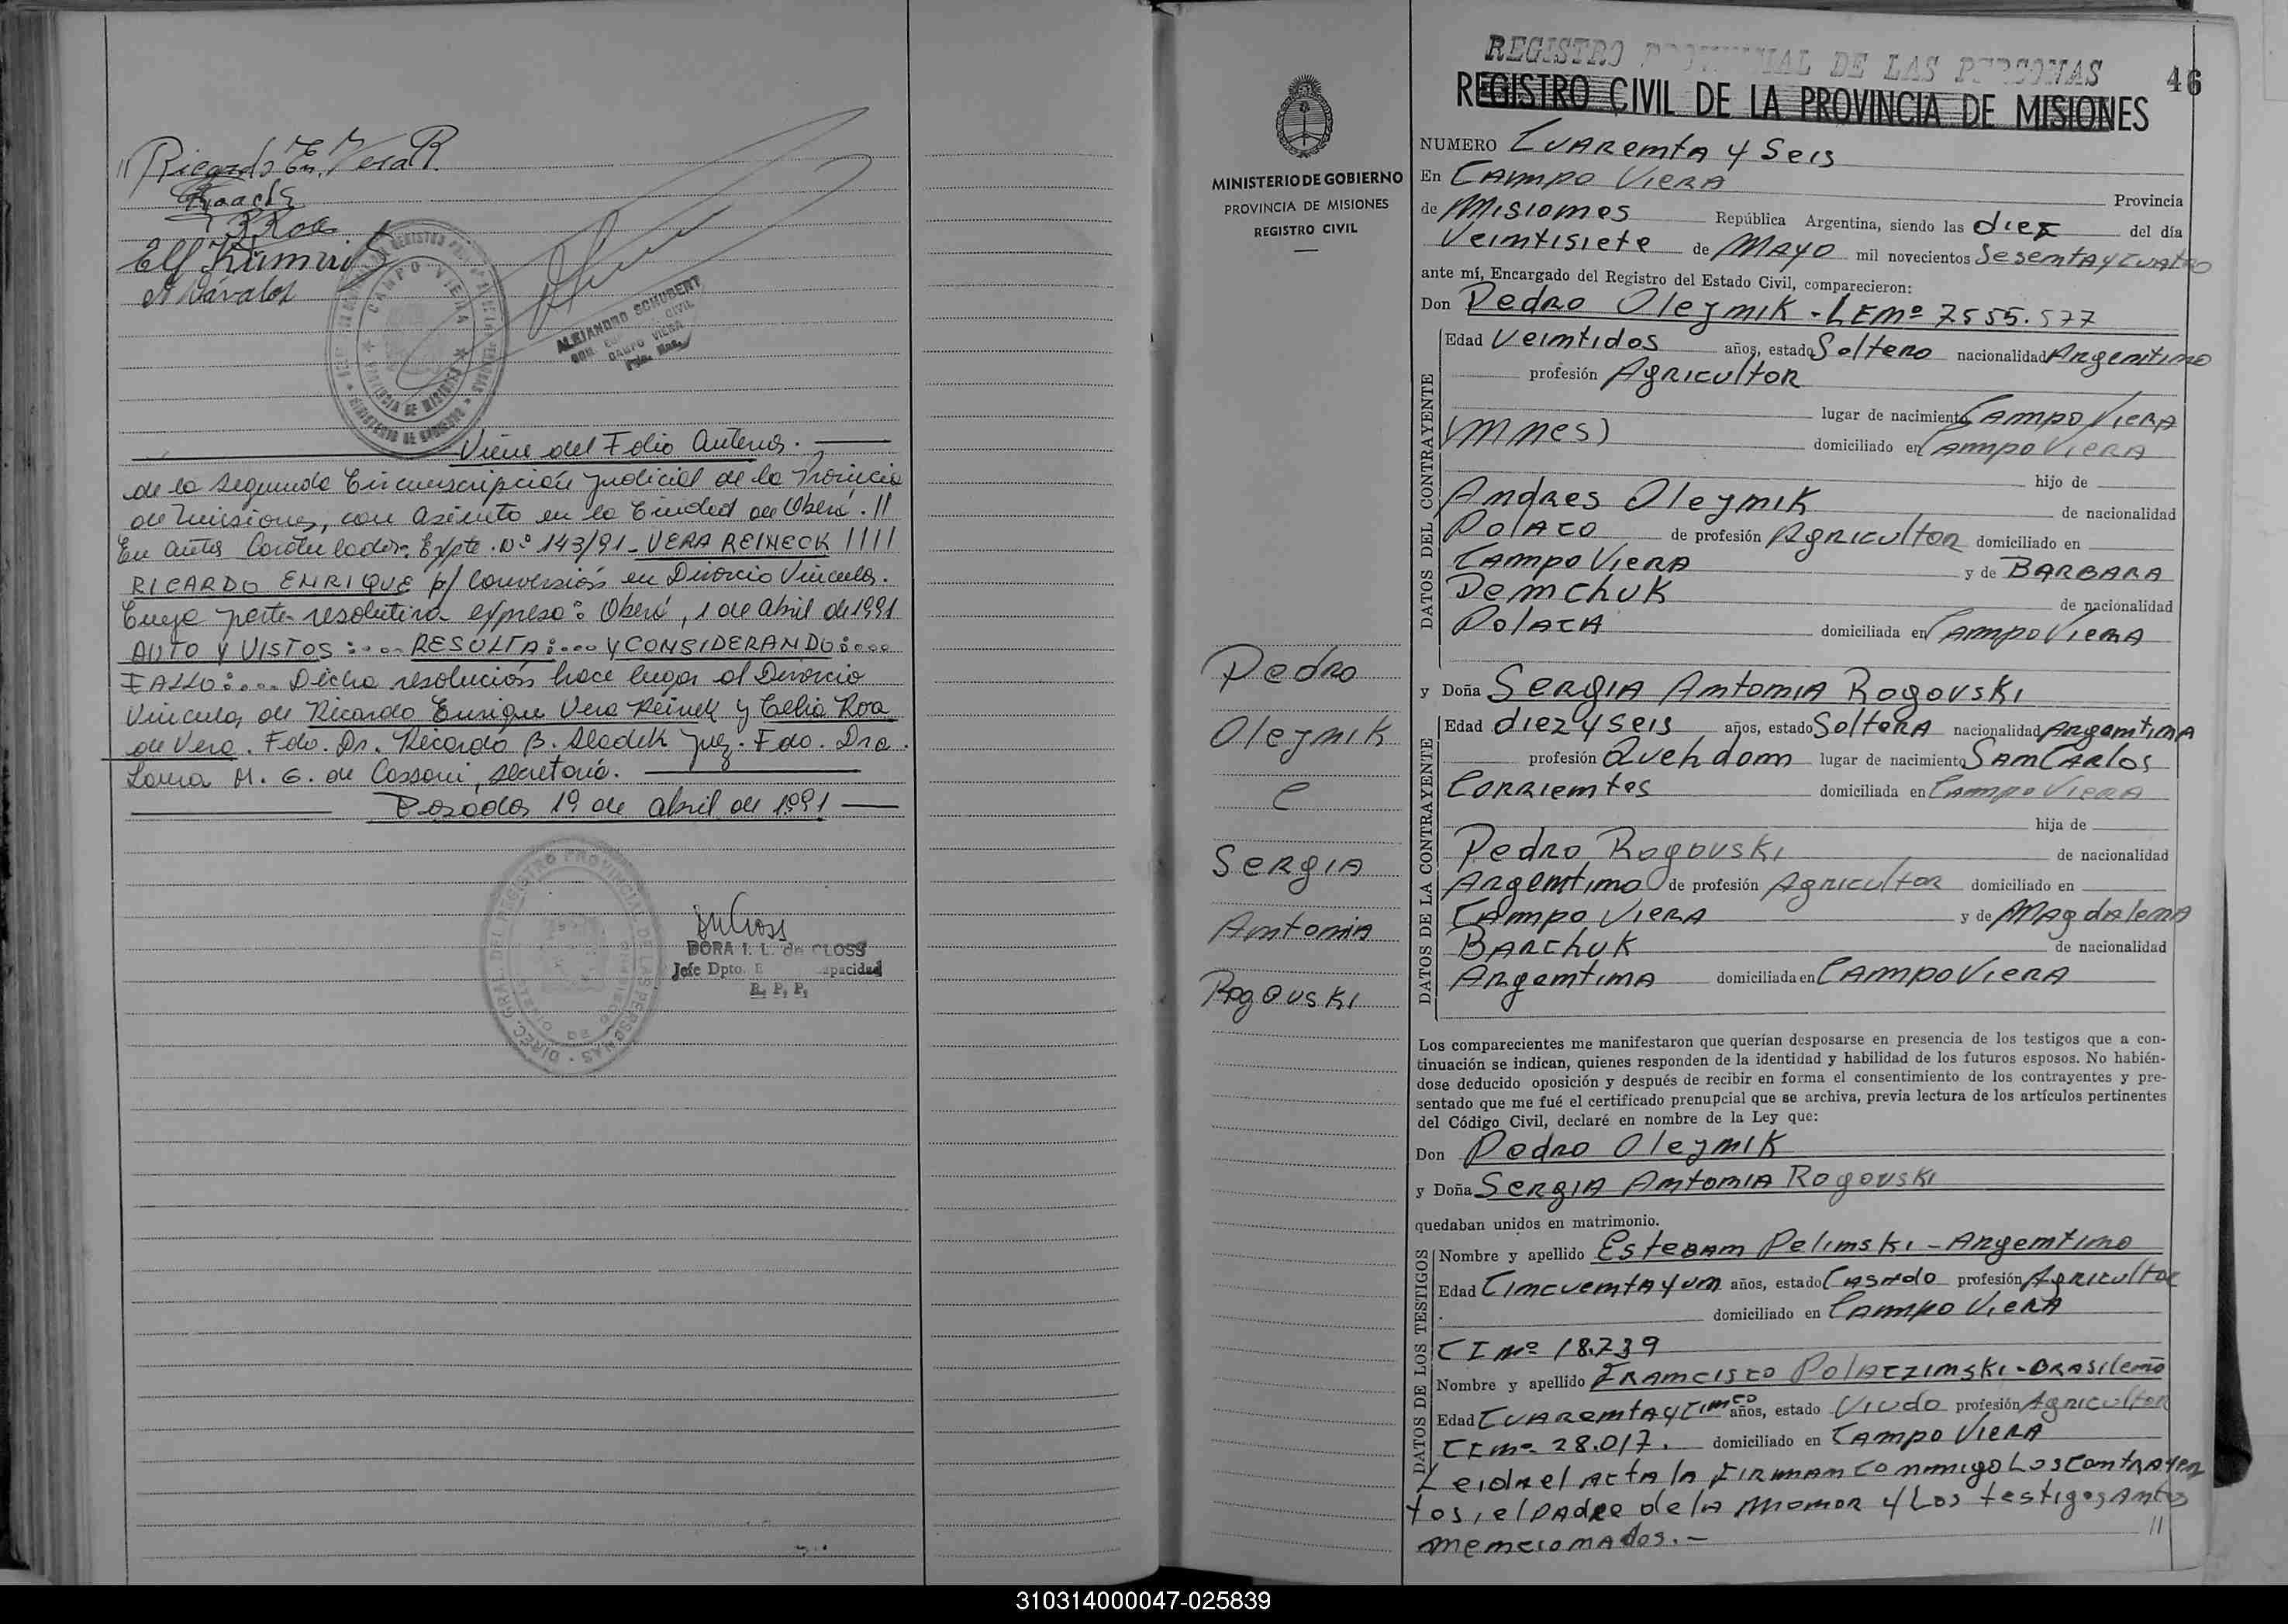 Ricardo En. Vera R.
Elf Kummris
Viene del Folio Anterior.
de la segunda Circunscripción Judicial de la Provincia
de Misiones, con asiento en la Ciudad de Oberá. //
En autos Caratulados: Expte. Nº 143/91 - VERA REINECK ////
RICARDO ENRIQUE p/ Conversión en Divorcio Vincular.
Cuya parte resolutiva expresa: Oberá, 1 de Abril de 1991
AUTO Y VISTOS:.... RESULTA:.... Y CONSIDERANDO:....
FALLO:.... Dicha resolución hace lugar al Divorcio
Vincular de Ricardo Enrique Vera Reineck y Celia Roa
de Vera. Fdo. Dr. Ricardo B. Sladek Juez. Fdo. Dra.
M. G. de Cassoni, secretaria.
Posadas 19 de Abril de 1991
ALEJANDRO SCHUBERT
CIVIL
CAMPO VIERA
CAMPO VIERA
PROVINCIA DE MISIONES
MINISTERIO DE GOBIERNO
DIREC. GRAL. DEL REGISTRO PROVINCIAL DE LAS PERSONAS
DORA I. L. de CLOSS
Jefe Dpto.
R. P. P.
MINISTERIO DE GOBIERNO
PROVINCIA DE MISIONES
REGISTRO CIVIL
Pedro
Olejnik
e
Sergia
Antonia
Rogovski
REGISTRO PROVINCIAL DE LAS PERSONAS
46
REGISTRO CIVIL DE LA PROVINCIA DE MISIONES
NUMERO Cuarenta y Seis
En Campo Viera Provincia
de Misiones República Argentina, siendo las diez del día
Veintisiete de Mayo mil novecientos Sesenta y cuatro
ante mí, Encargado del Registro del Estado Civil, comparecieron:
Don Pedro Olejnik - LE Nº 7555.577
DATOS DEL CONTRAYENTE
Edad Veintidos años, estado Soltero nacionalidad Argentino
profesión Agricultor
lugar de nacimiento Campo Viera
(Mnes) domiciliado en Campo Viera
hijo de
Andres Olejnik de nacionalidad
Polaco de profesión Agricultor domiciliado en
Campo Viera y de Barbara
Demchuk de nacionalidad
Polaca domiciliada en Campo Viera
y Doña Sergia Antonia Rogovski
DATOS DE LA CONTRAYENTE
Edad diez y seis años, estado Soltera nacionalidad Argentina
profesión Quehdom lugar de nacimiento San Carlos
Corrientes domiciliada en Campo Viera
hija de
Pedro Rogovski de nacionalidad
Argentino de profesión Agricultor domiciliado en
Campo Viera y de Magdalena
Barchuk de nacionalidad
Argentina domiciliada en Campo Viera
Los comparecientes me manifestaron que querían desposarse en presencia de los testigos que a con-
tinuación se indican, quienes responden de la identidad y habilidad de los futuros esposos. No habién-
dose deducido oposición y después de recibir en forma el consentimiento de los contrayentes y pre-
sentado que me fué el certificado prenupcial que se archiva, previa lectura de los artículos pertinentes
del Código Civil, declaré en nombre de la Ley que:
Don Pedro Olejnik
y Doña Sergia Antonia Rogovski
quedaban unidos en matrimonio.
DATOS DE LOS TESTIGOS
Nombre y apellido Esteban Pelinski - Argentino
Edad Cincuenta y un años, estado Casado profesión Agricultor
domiciliado en Campo Viera
CI Nº 18.739
Nombre y apellido Francisco Polaczinski - Brasileño
Edad Cuarenta y cinco años, estado Viudo profesión Agricultor
CI Nº 28.017. domiciliado en Campo Viera
Leida el Acta la Firman conmigo Los contrayen
tes, el Padre de la Menor y Los testigos antes
mencionados.- //
310314000047-025839